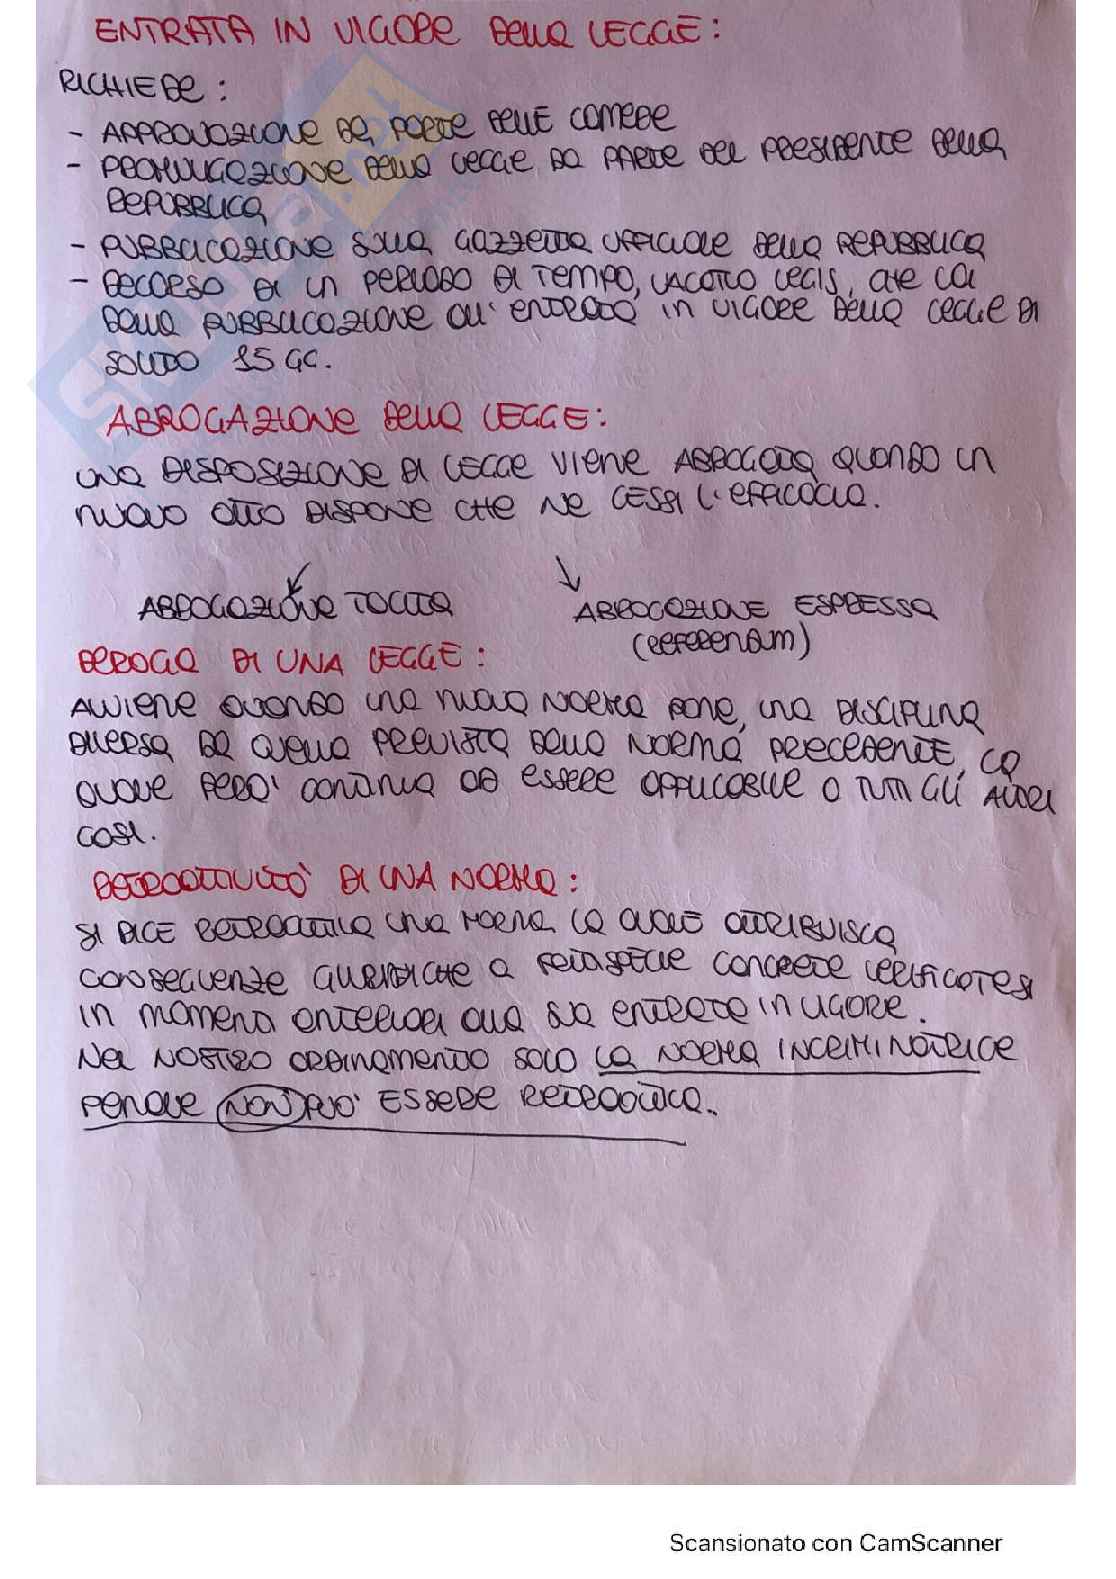 ENTRATA IN VIGORE DELLA LEGGE:
RICHIEDE:
- APPROVAZIONE DA PARTE DELLE CAMERE
- PROMULGAZIONE DELLA LEGGE DA PARTE DEL PRESIDENTE DELLA
REPUBBLICA
- PUBBLICAZIONE SULLA GAZZETTA UFFICIALE DELLA REPUBBLICA
- DECORSO DI UN PERIODO DI TEMPO, VACATIO LEGIS, CHE VA
DALLA PUBBLICAZIONE ALL'ENTRATA IN VIGORE DELLA LEGGE DI
SOLITO 15 GG.
ABROGAZIONE DELLA LEGGE:
UNA DISPOSIZIONE DI LEGGE VIENE ABROGATA QUANDO UN
NUOVO ATTO DISPONE CHE NE CESSI L'EFFICACIA.
ABROGAZIONE TACITA ABROGAZIONE ESPRESSA
(REFERENDUM)
DEROGA DI UNA LEGGE:
AVVIENE QUANDO UNA NUOVA NORMA PONE, UNA DISCIPLINA
DIVERSA DA QUELLA PREVISTA DALLA NORMA PRECEDENTE, LA
QUALE PERO' CONTINUA AD ESSERE APPLICABILE A TUTTI GLI ALTRI
CASI.
RETROATTIVITÀ DI UNA NORMA:
SI DICE RETROATTIVA UNA NORMA LA QUALE ATTRIBUISCA
CONSEGUENZE GIURIDICHE A FATTISPECIE CONCRETE VERIFICATESI
IN MOMENTI ANTERIORI ALLA SUA ENTRATA IN VIGORE.
NEL NOSTRO ORDINAMENTO SOLO LA NORMA INCRIMINATRICE
PENALE NON PUO' ESSERE RETROATTIVA.
Scansionato con CamScanner